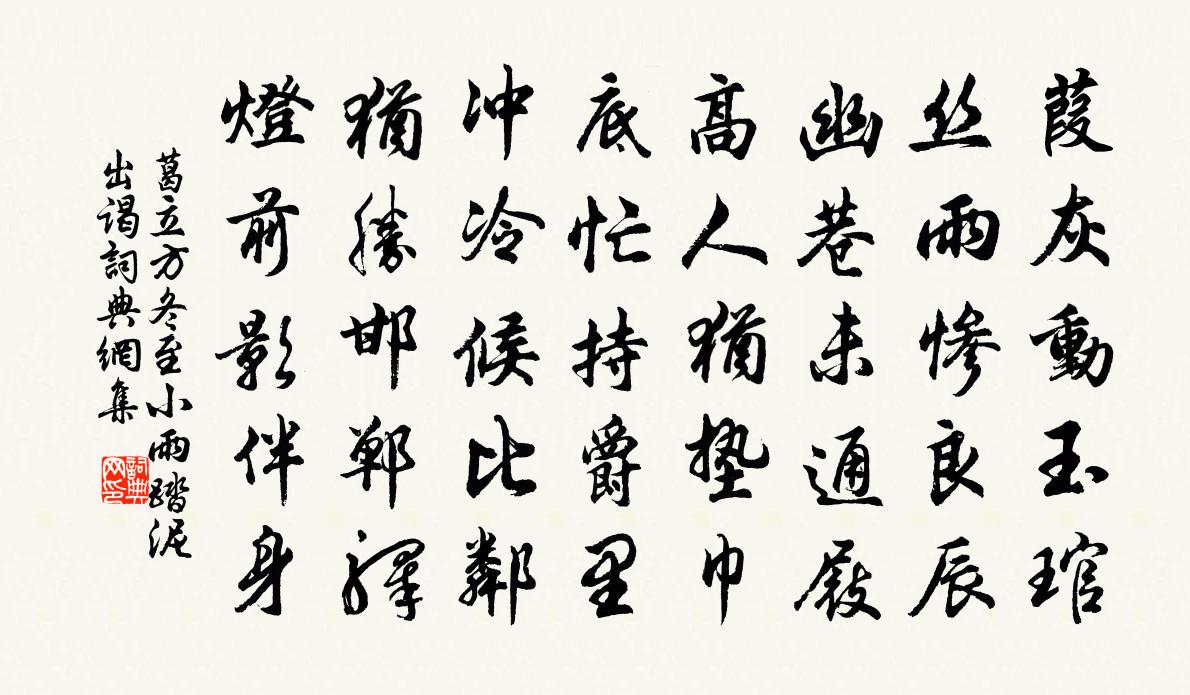 葭灰動玉琯
丝雨慘良辰
幽巷未通屐
高人猶墊巾
底忙持爵里
冲冷候比鄰
猶勝邯鄲驛
燈前影伴身
葛立方冬至小雨踏泥
出谒詞典網集
詞典
网印